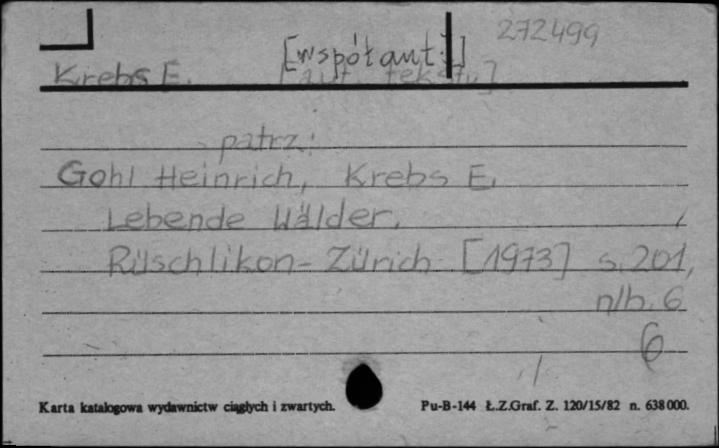 272499
[współaut.]
Krebs E. [aut. tekstu]
patrz:
Gohl Heinrich, Krebs E.
Lebende Wälder.
Rüschlikon-Zürich [1973] s. 201,
n/b. 6
6
Karta katalogowa wydawnictw ciągłych i zwartych. Pu-B-144 Ł.Z.Graf. Z. 120/15/82 n. 638000.